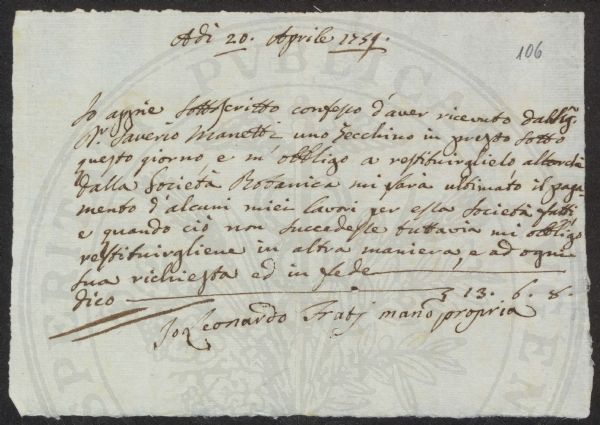 Adi 20. Aprile 1759.
106
Io appiè sottoscritto confesso d'aver ricevuto dall Sig.
Dr. Saverio Manetti uno Zecchino in presto sotto
questo giorno e m'obbligo a restituirglielo allorchè
dalla Società Botanica mi sarà ultimato il paga-
mento d'alcuni miei lavori per essa Società fatti,
e quando ciò non succedesse tuttavia mi obbligo
restituirgliene in altra maniera, e ad ogni
sua richiesta ed in fede
dico 13. 6. 8.
Io Leonardo Frati mano propria